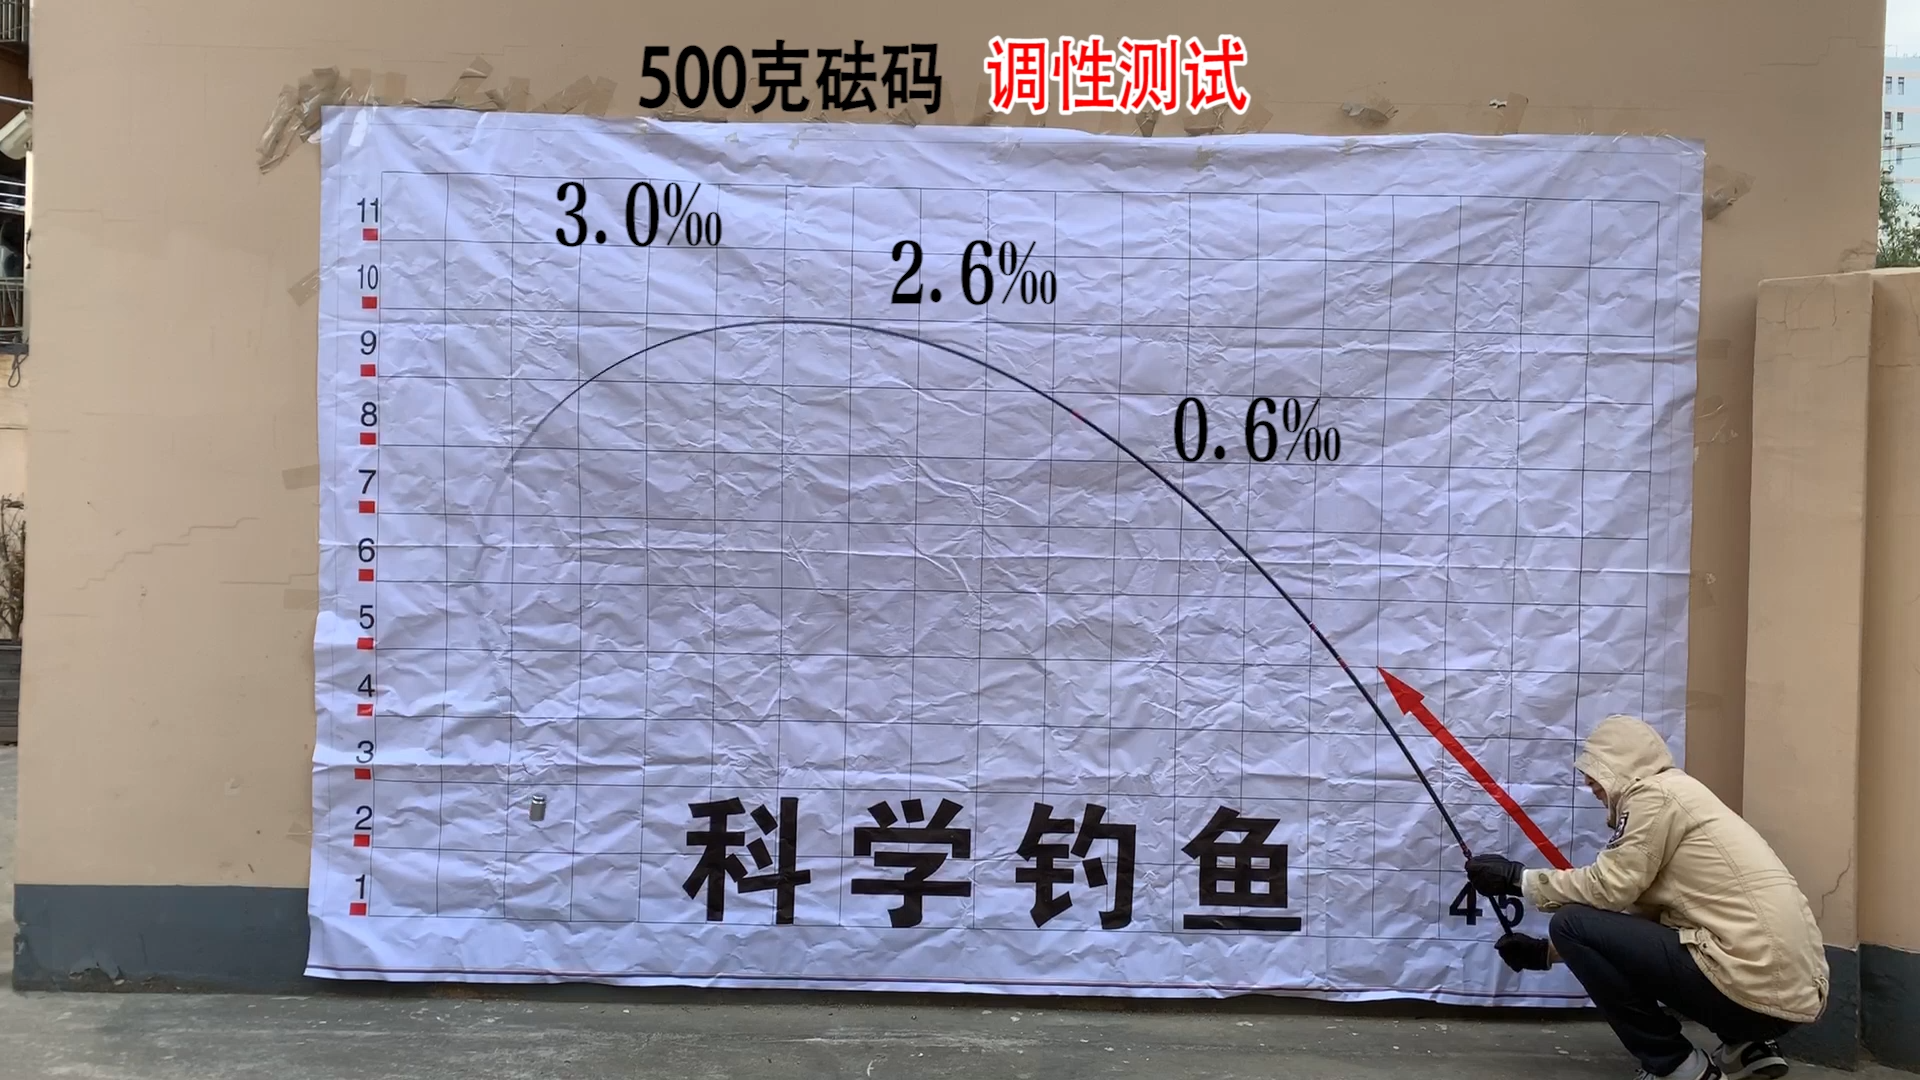 500克砝码 调性测试
11
3.0‰
10
2.6‰
9
8
0.6‰
7
6
5
4
3
2
1
科学钓鱼
45